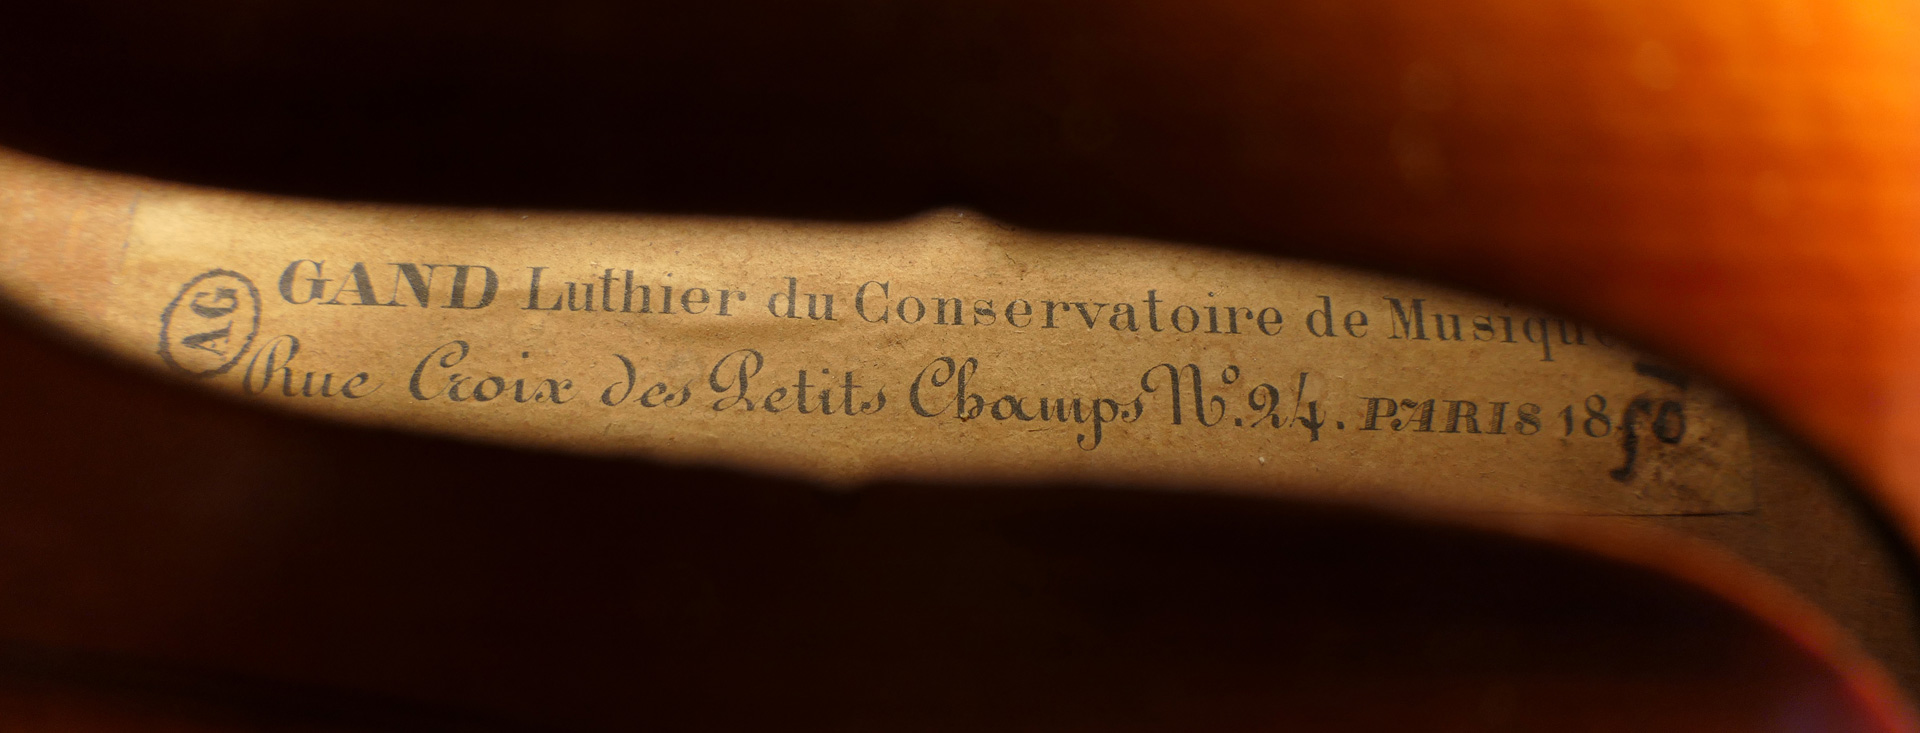 AG
GAND Luthier du Conservatoire de Musique
Rue Croix des Petits Champs No. 24. PARIS 1850